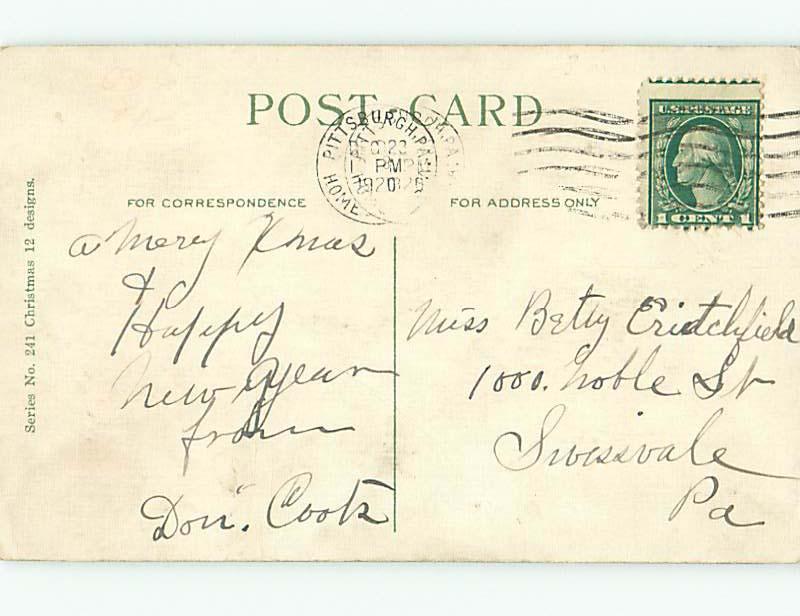 POST CARD
PITTSBURGH, PA.
PM
1920
U.S. POSTAGE
1 CENT 1
FOR CORRESPONDENCE
FOR ADDRESS ONLY
Series No. 241 Christmas 12 designs.
a Merry Xmas
&
Happy
New Year
from
Don. Cook
Miss Betty Critchfield
1000. Noble St
Swissvale
Pa